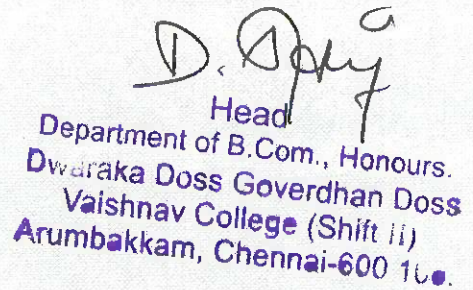 D.
Head
Department of B.Com., Honours.
Dwaraka Doss Goverdhan Doss
Vaishnav College (Shift II)
Arumbakkam, Chennai-600